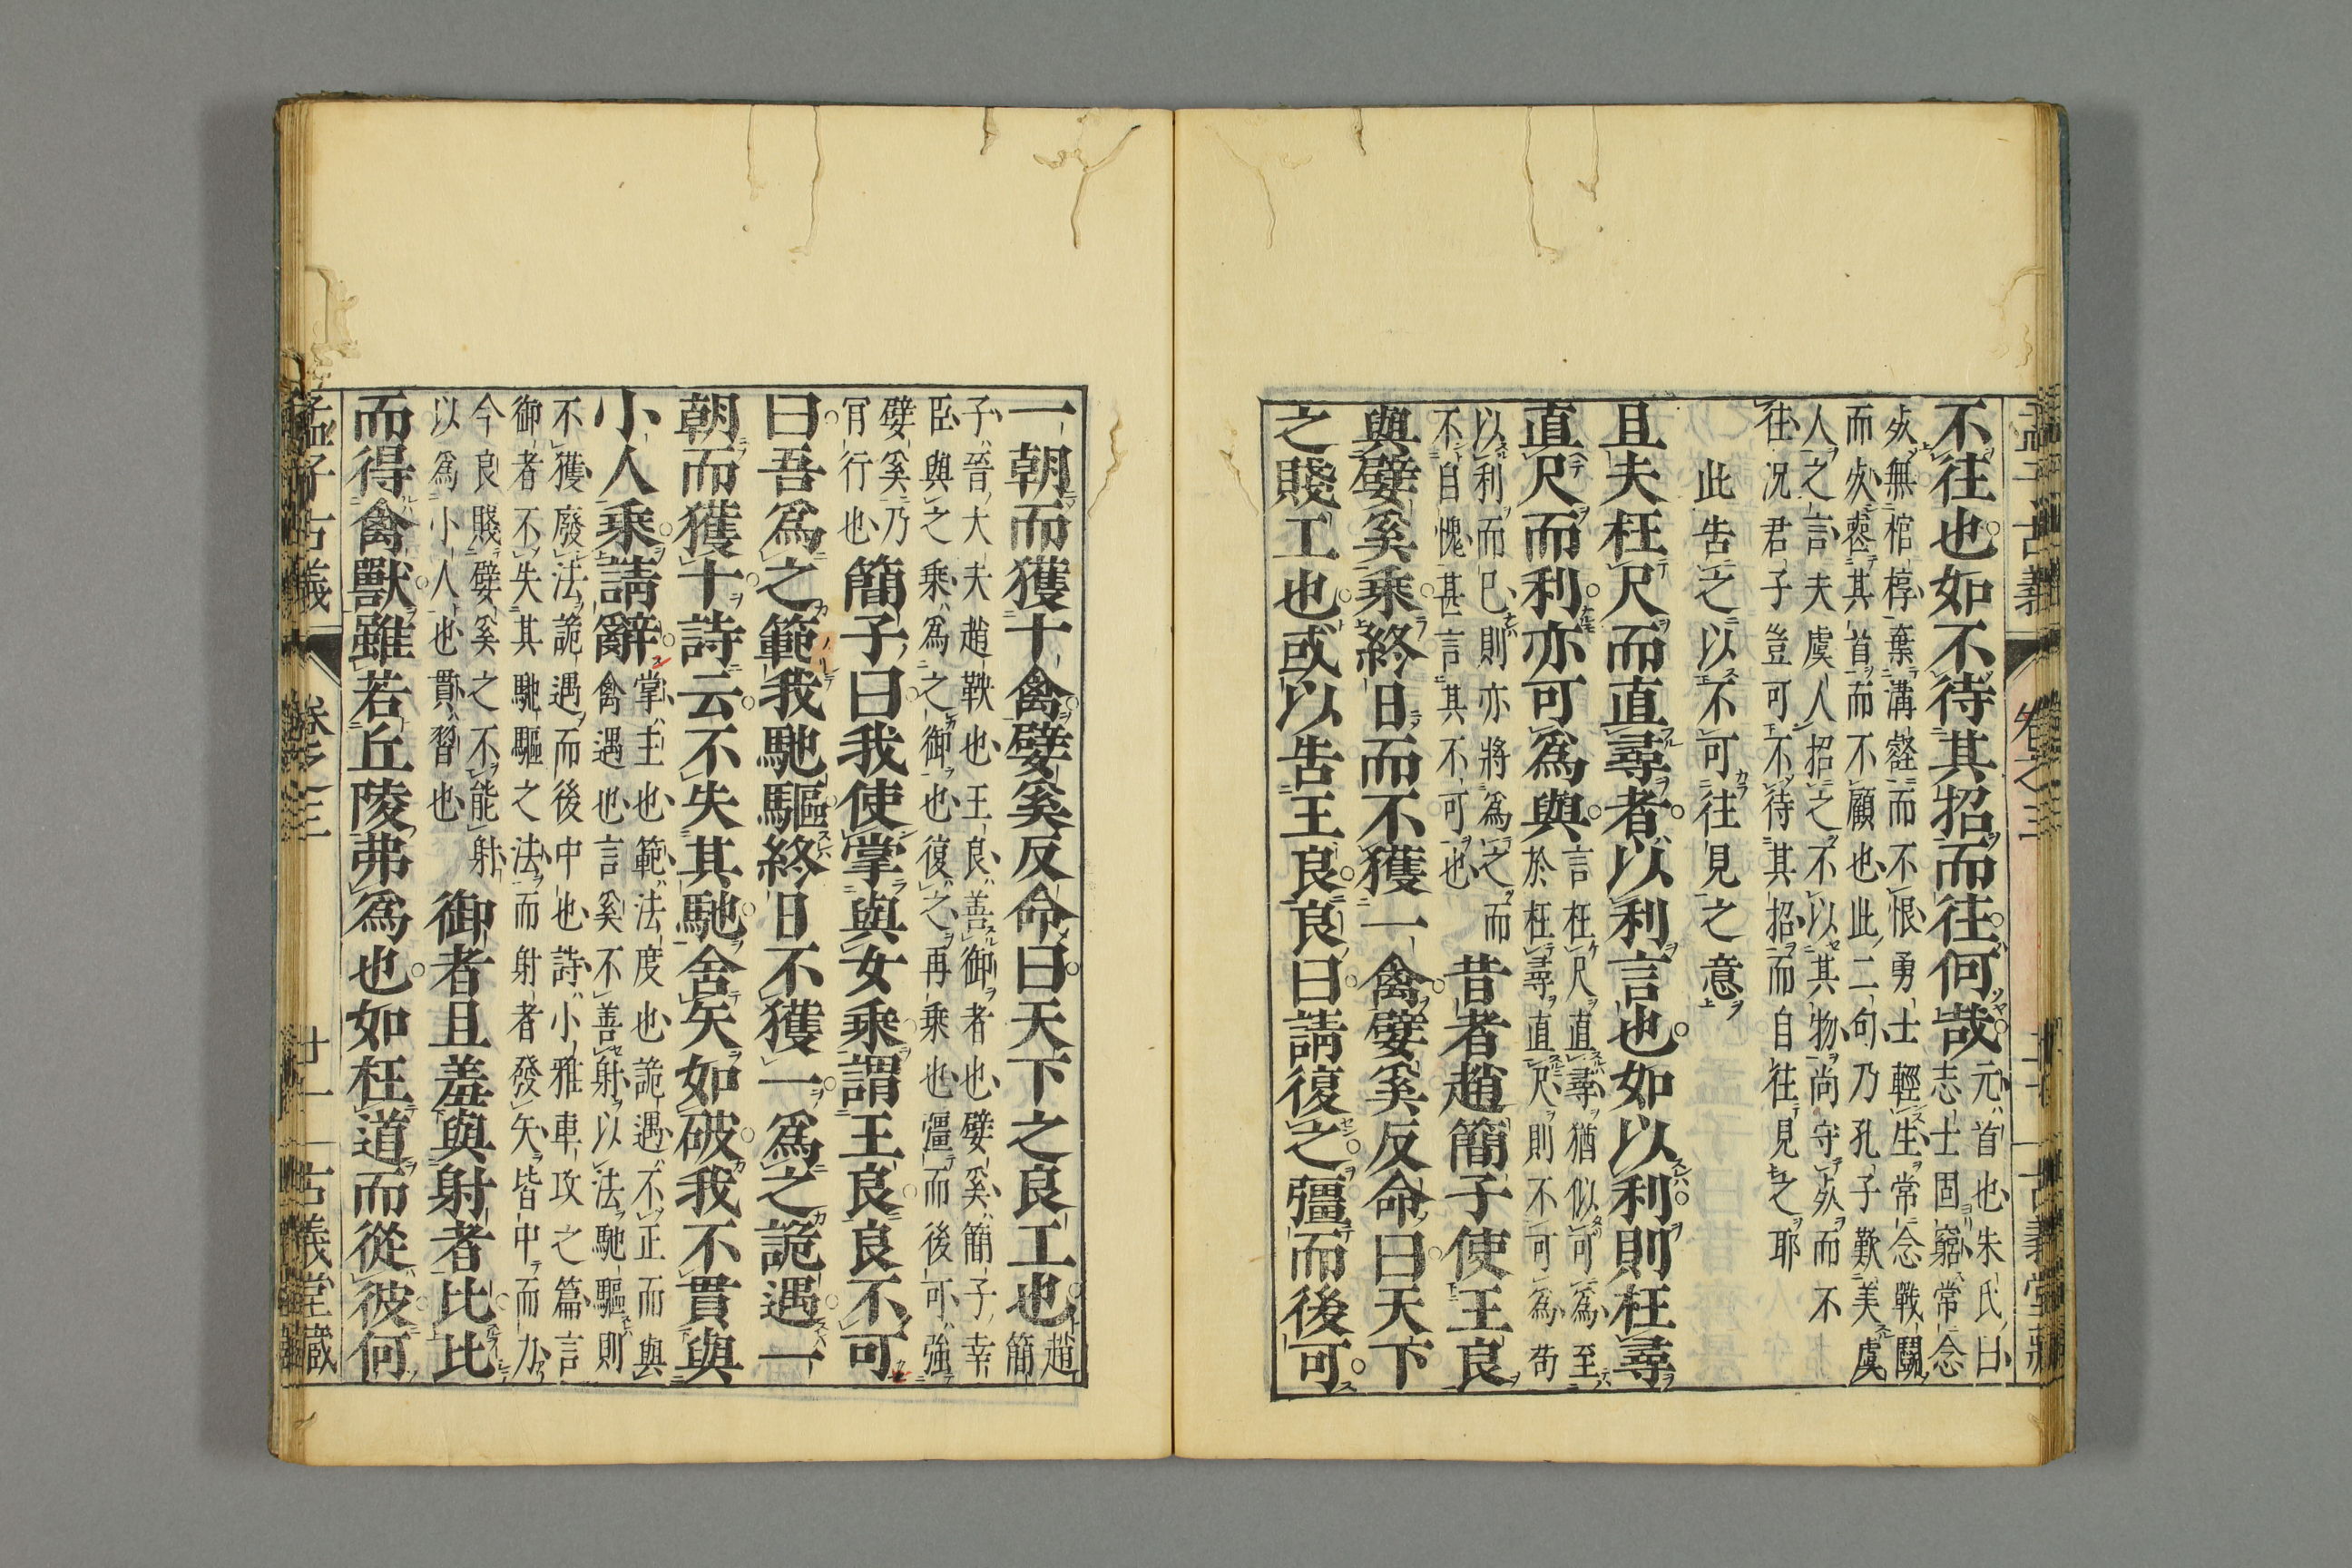 不往也如不待其招而往何哉元首也朱氏曰
志士固窮常念
死無棺椁棄溝壑而不恨勇士輕生常念戰鬪
而死喪其首而不顧也此二句乃孔子歎美虞
人之言夫虞人招之不以其物尚守死而不
往况君子豈可不待其招而自往見之耶
此告之以不可往見之意
且夫枉尺而直尋者以利言也如以利則枉尋
直尺而利亦可爲與言枉尺直尋猶似可爲至
於枉尋直尺則不可爲苟
以利而已則亦將爲之而
不自愧甚言其不可也
昔者趙簡子使王良
與嬖奚乘終日而不獲一禽嬖奚反命曰天下
之賤工也或以告王良良曰請復之彊而後可
孟子古義
卷之三
古義堂藏
一朝而獲十禽嬖奚反命曰天下之良工也趙
簡
子晉大夫趙鞅也王良善御者也嬖奚簡子幸
臣與之乘爲之御也復之再乘也彊而後可強
嬖奚乃
肎行也
簡子曰我使掌與女乘謂王良良不可
曰吾爲之範我馳驅終日不獲一爲之詭遇一
朝而獲十詩云不失其馳舍矢如破我不貫與
小人乘請辭掌主也範法度也詭遇不正而與
禽遇也言奚不善射以法馳驅則
不獲廢法詭遇而後中也詩小雅車攻之篇言
御者不失其馳驅之法而射者發矢皆中而力
今良賤嬖奚之不能射
以爲小人也貫習也
御者且羞與射者比比
而得禽獸雖若丘陵弗爲也如枉道而從彼何
孟子古義
卷之三
廿一
古義堂藏